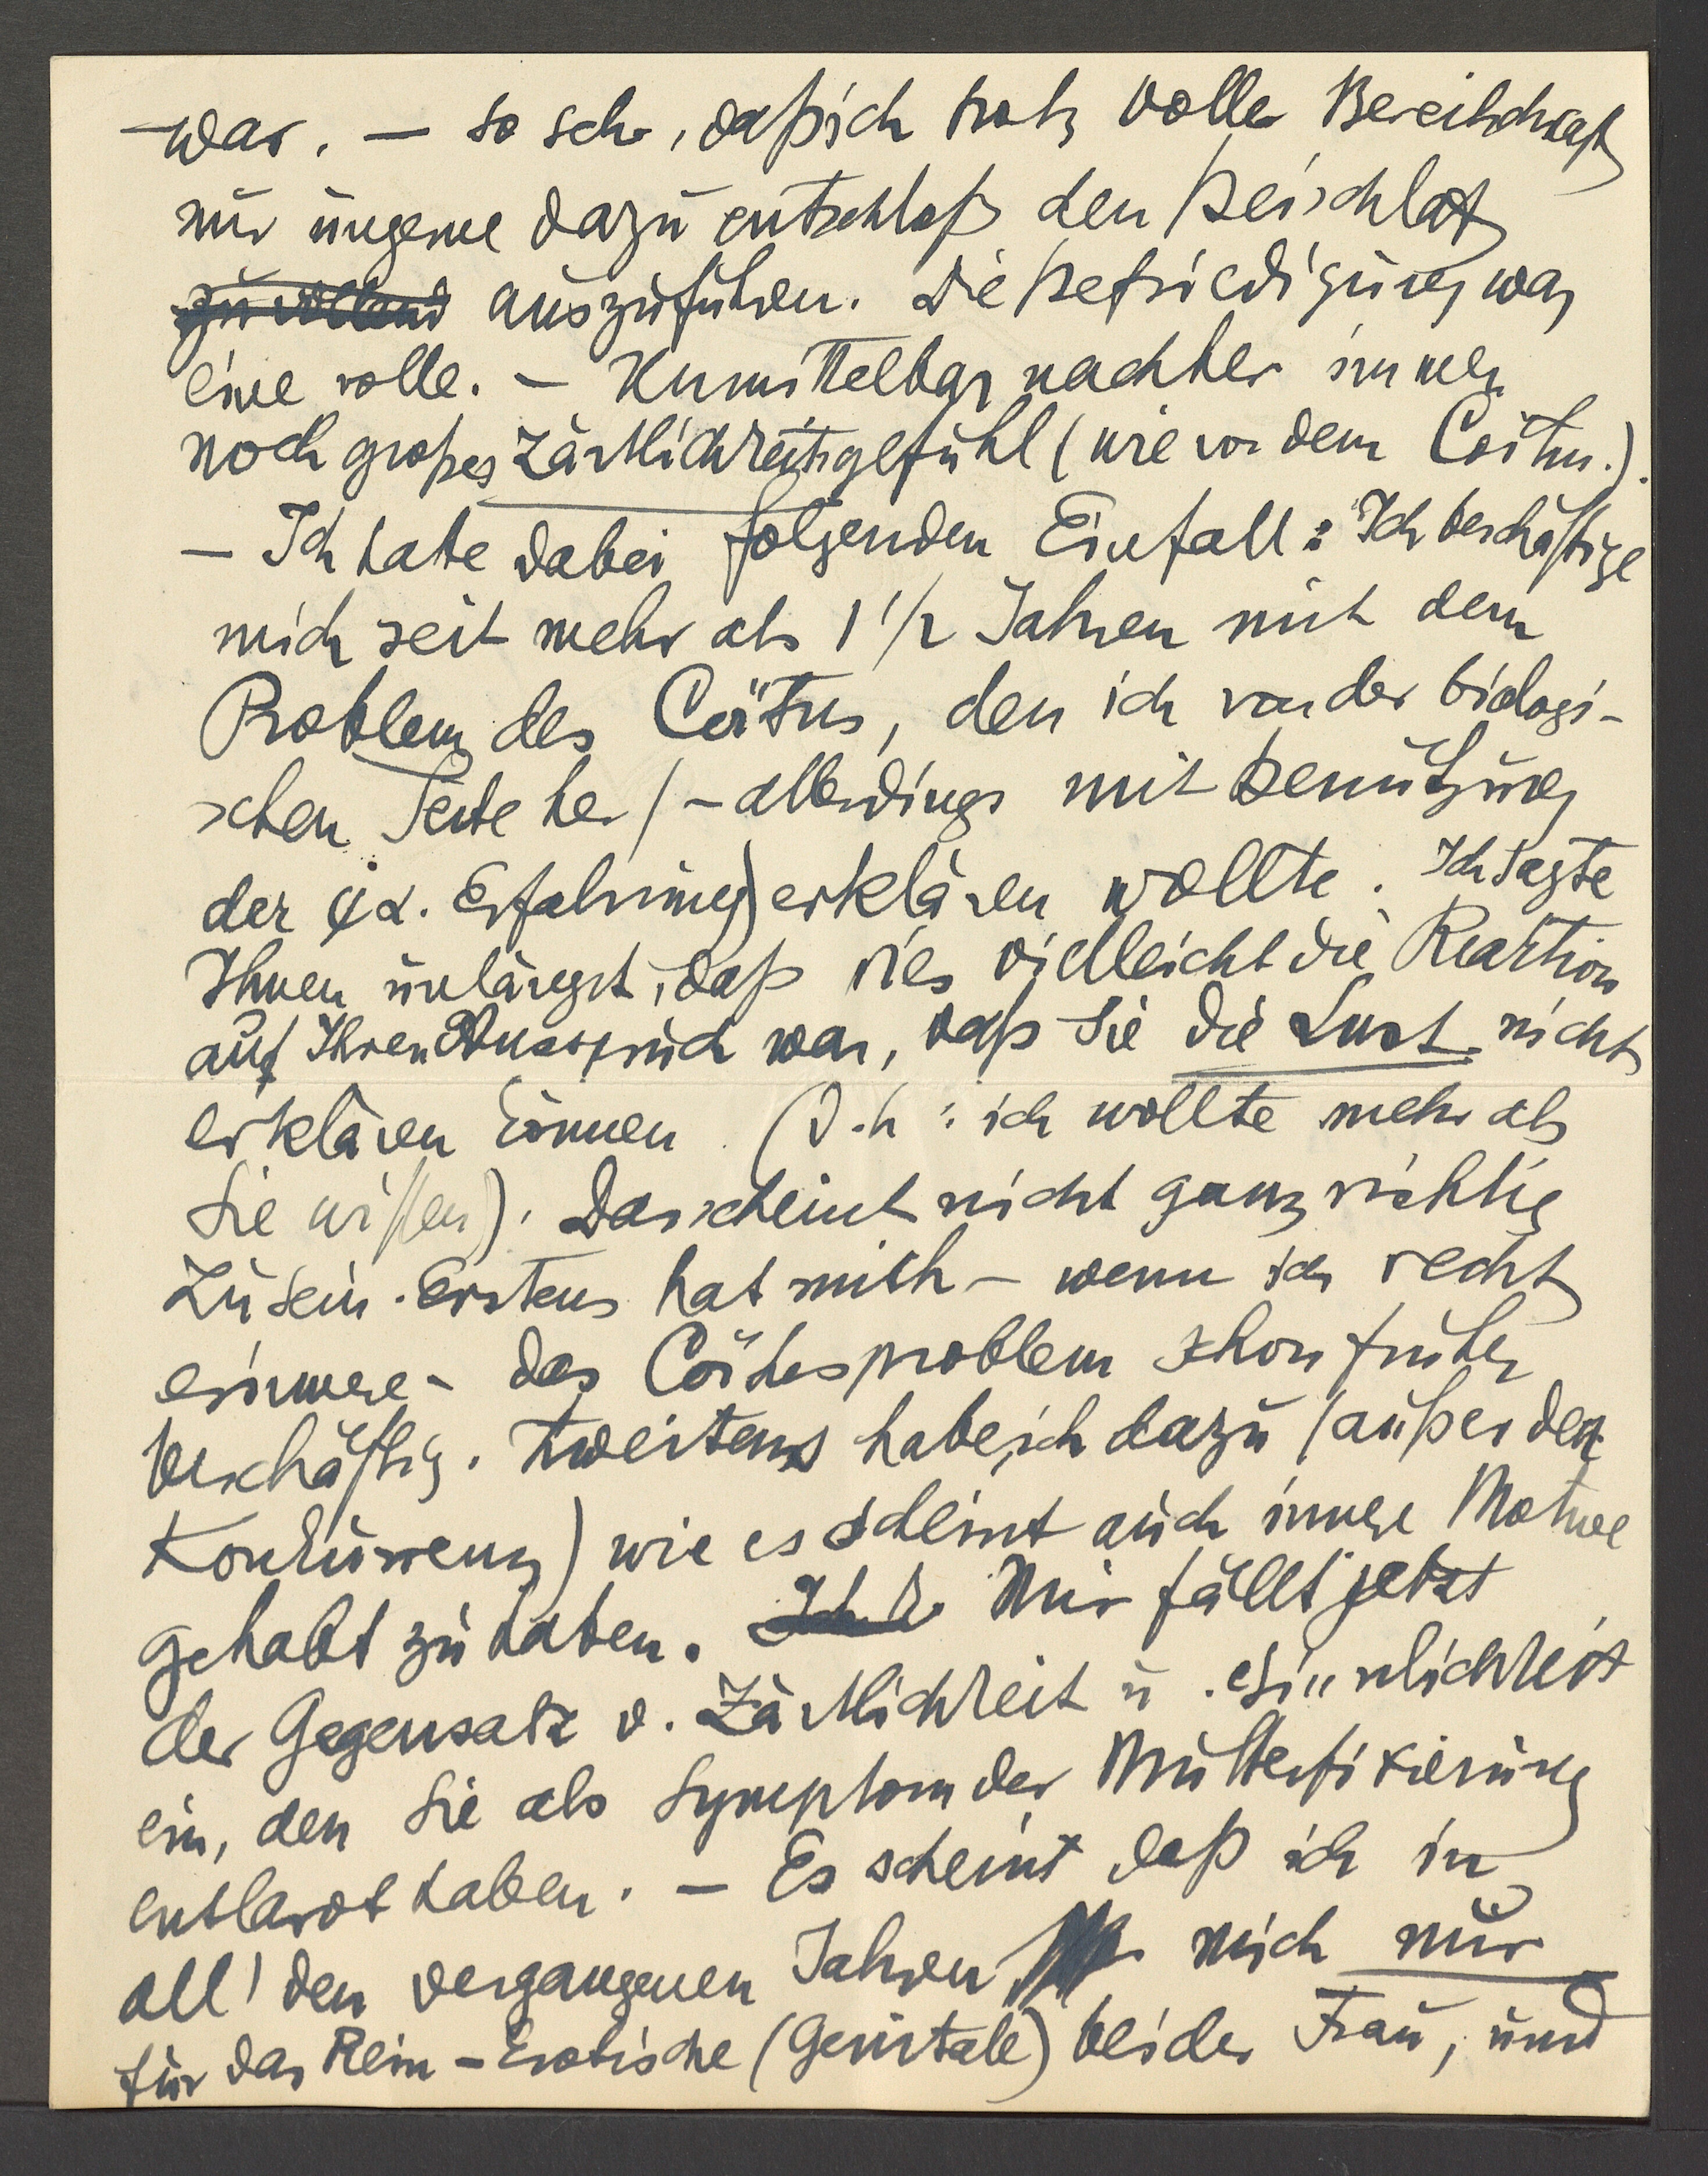 war. – so sehr, daß ich trotz voller Bereitschaft
nur ungerne dazu entschloß den Beischlaf
zu vollend auszuführen. Die Befriedigung war
eine volle. – Unmittelbar nachher immer
noch großes Zärtlichkeitsgefühl (wie vor dem Coitus.).
– Ich habe dabei folgenden Einfall: Ich beschäftige
mich seit mehr als 1 1/2 Jahren mit dem
Problem des Coïtus, den ich von der biologi-
schen Seite her (– allerdings mit Benützung
der ψα. Erfahrung) erklären wollte. Ich sagte
Ihnen unlängst, daß dies vielleicht die Reaktion
auf Ihren Ausspruch war, daß Sie die Lust nicht
erklären können. (D.h: ich wollte mehr als
Sie wissen). Das scheint nicht ganz richtig
zu sein. Erstens hat mich – wenn ich recht
erinnere – das Coïtusproblem schon früher
beschäftig. Zweitens habe ich dazu (außer der
Konkurrenz) wie es scheint auch innere Motive
gehabt zu haben. Ich Mir fällt jetzt
der Gegensatz v. Zärtlichkeit u. Sinnlichkeit
ein, den Sie als Symptom der Mutterfixierung
entlarvt haben. – Es scheint daß ich in
all' den vergangenen Jahren mich nur
für das Rein-Erotische (Genitale) bei der Frau, und